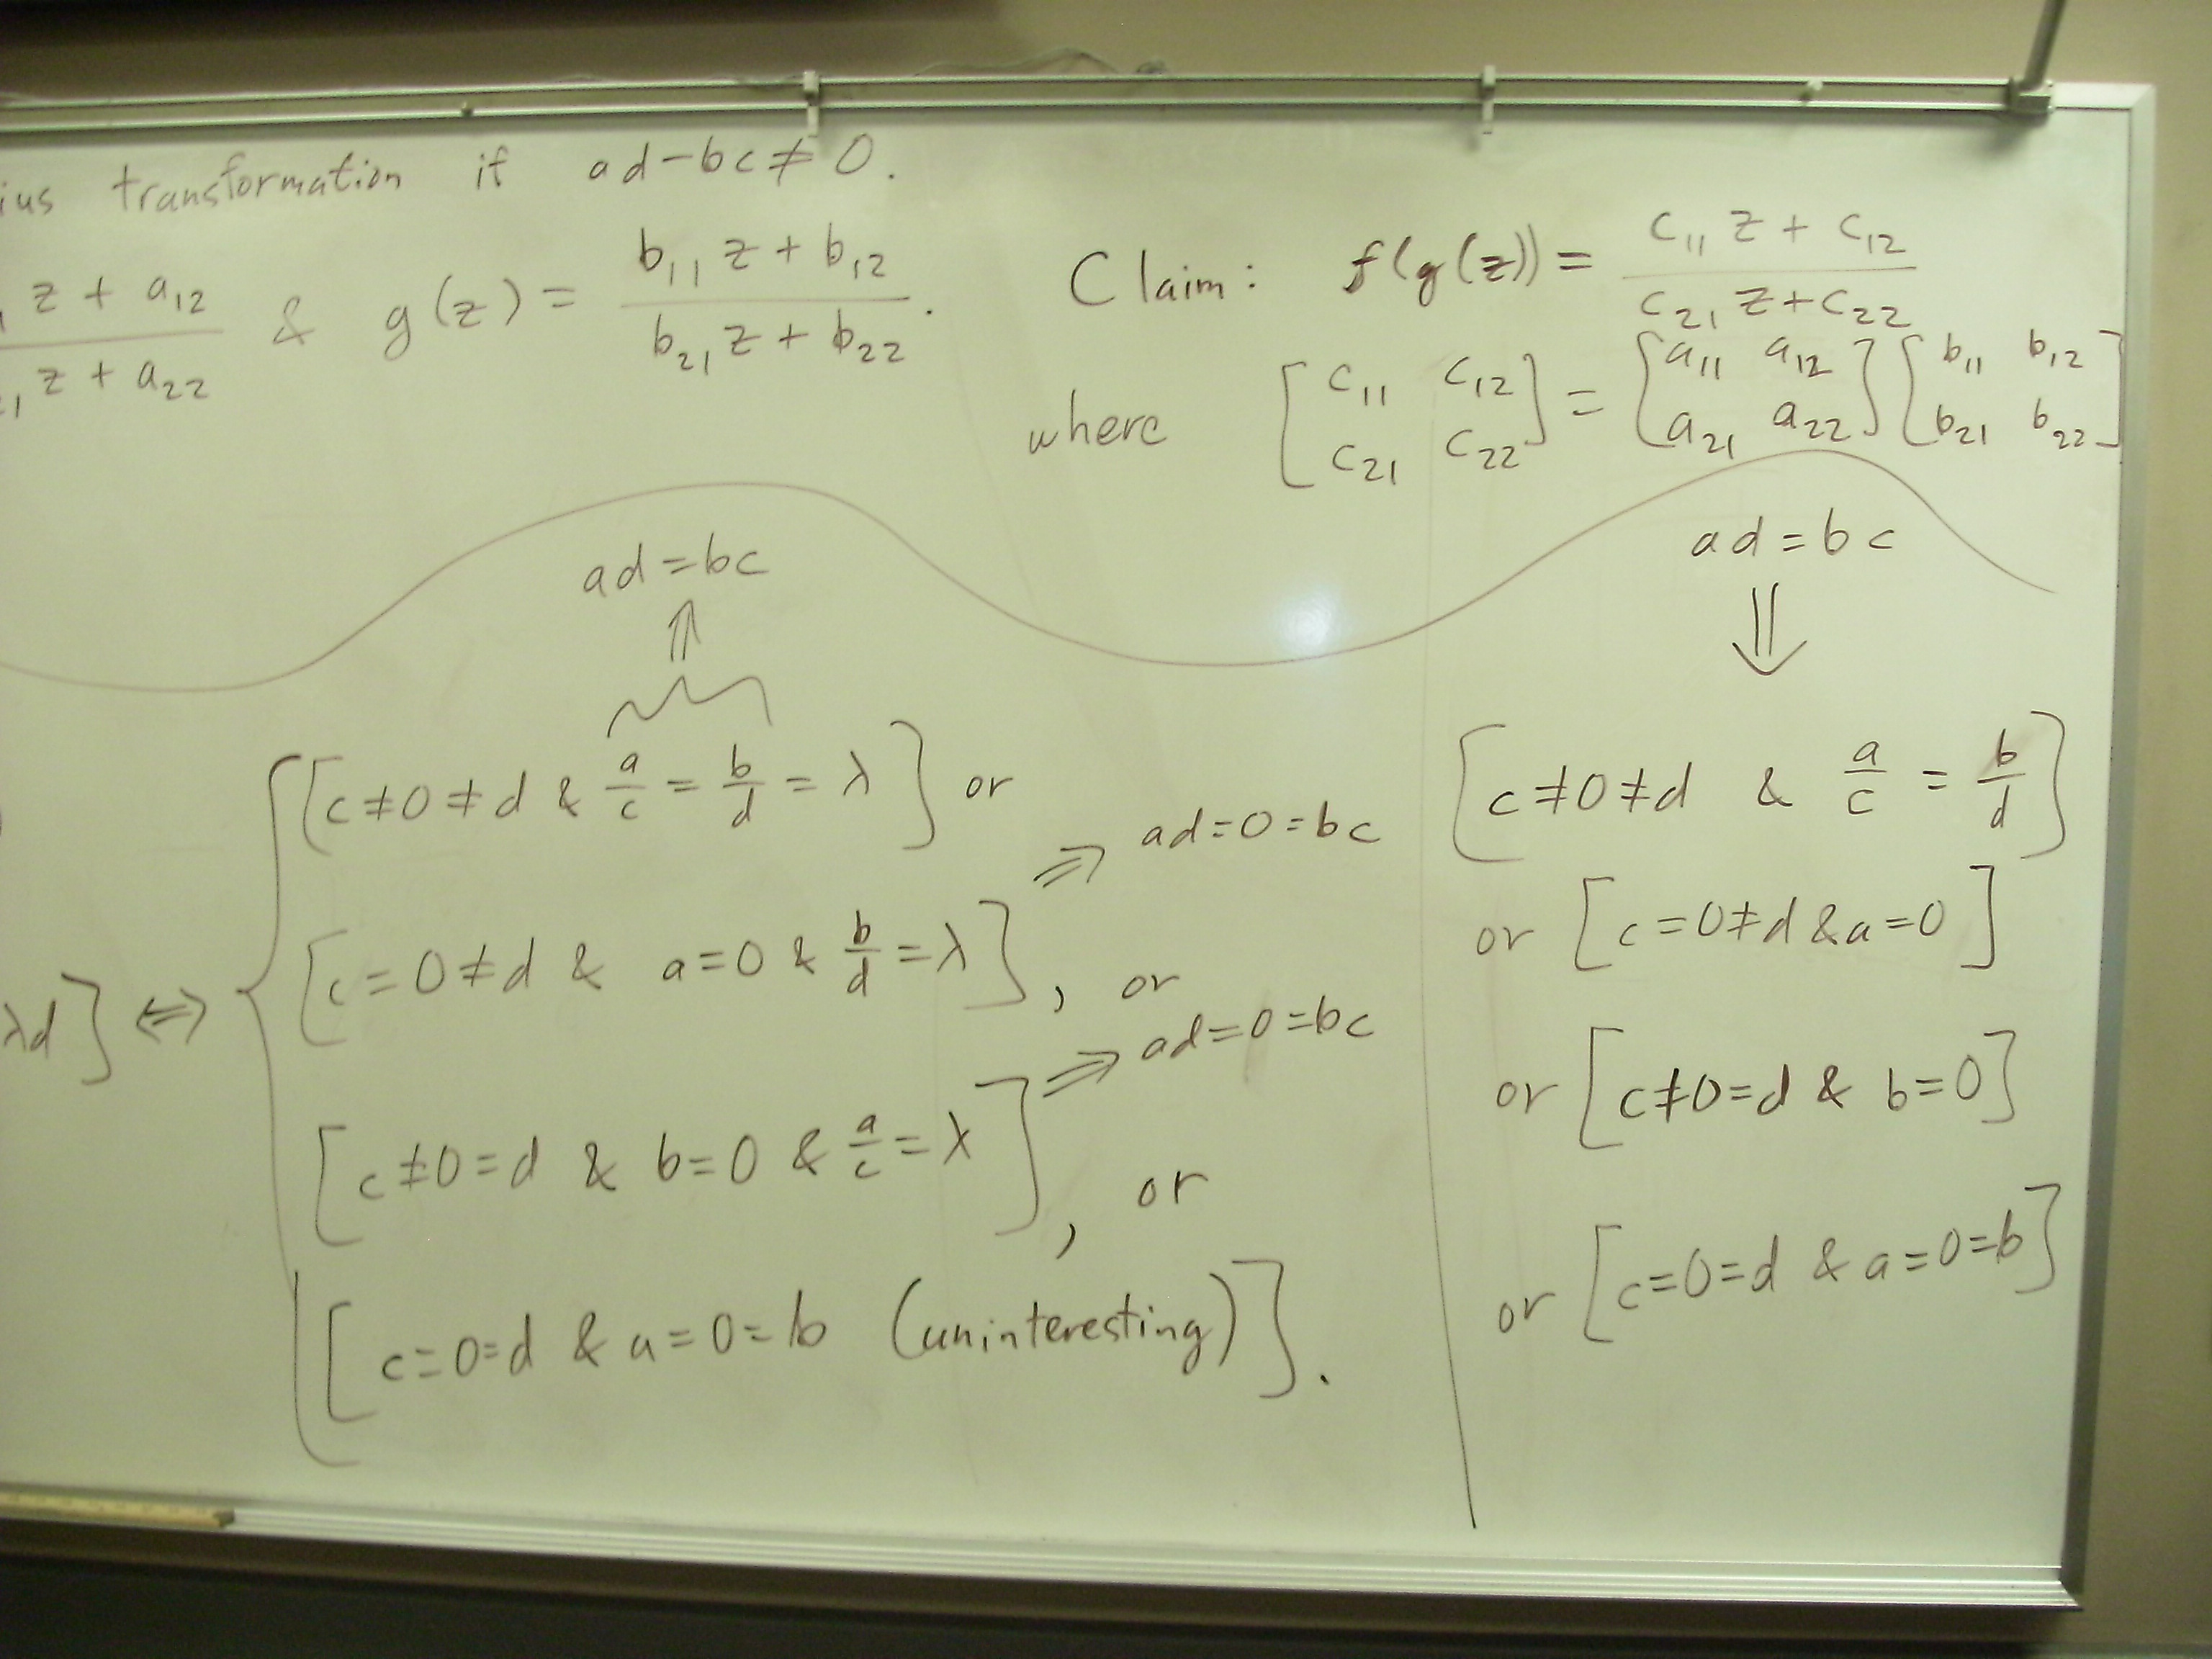 ius transformation if ad-bc≠0.
z + a₁₂ & g(z) = (b₁₁ z + b₁₂)/(b₂₁ z + b₂₂).
z + a₂₂
Claim: f(g(z)) = (c₁₁ z + c₁₂)/(c₂₁ z + c₂₂)
where [c₁₁ c₁₂; c₂₁ c₂₂] = [a₁₁ a₁₂; a₂₁ a₂₂] [b₁₁ b₁₂; b₂₁ b₂₂]
ad=bc
⇑
λd] ⇔ {
[c≠0≠d & a/c = b/d = λ] or
⇒ ad=0=bc
[c=0≠d & a=0 & b/d=λ], or
⇒ ad=0=bc
[c≠0=d & b=0 & a/c=λ], or
[c=0=d & a=0=b (uninteresting)].
ad=bc
⇓
[c≠0≠d & a/c = b/d]
or [c=0≠d & a=0]
or [c≠0=d & b=0]
or [c=0=d & a=0=b]